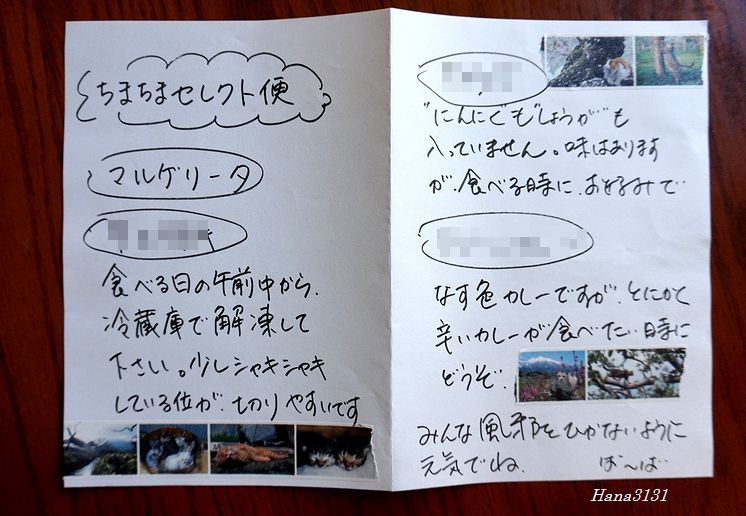 ちまちまセレクト便
マルゲリータ
食べる日の午前中から、
冷蔵庫で解凍して
下さい。少しシャキシャキ
している位が、切りやすいです
"にんにく"も"しょうが"も
入っていません。味はあります
が、食べる時に、お好みで
なす色カレーですが、とにかく
辛いカレーが食べたい時に
どうぞ.
みんな風邪をひかないように
元気でね.
ば〜ば
Hana3131